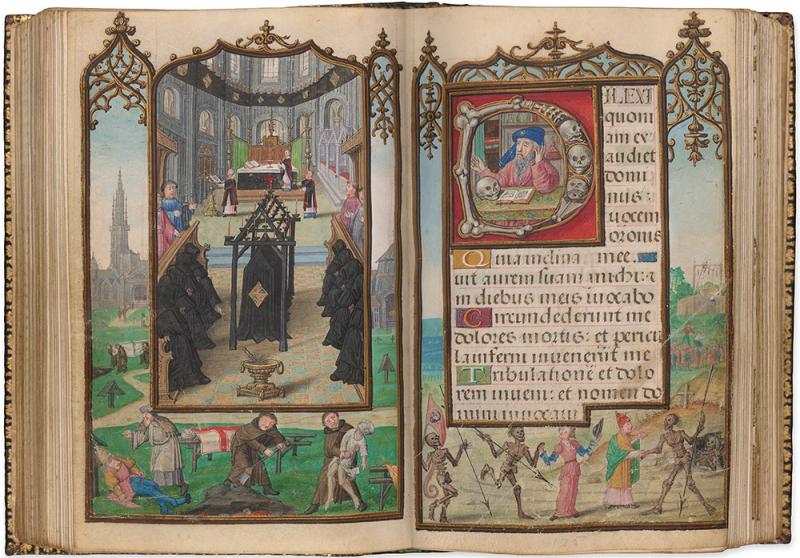 DILEXI
quoni
am ex
audiet
domi
nus:
uocem
orōnis
Quia inclina mee.
uit aurem suam michi: ⁊
in diebus meis inuocabo
Circundederunt me
dolores mortis: et pericu
la inferni inuenerūt me
Tribulationē et dolo
rem inueni: et nomen do
mini inuocaui